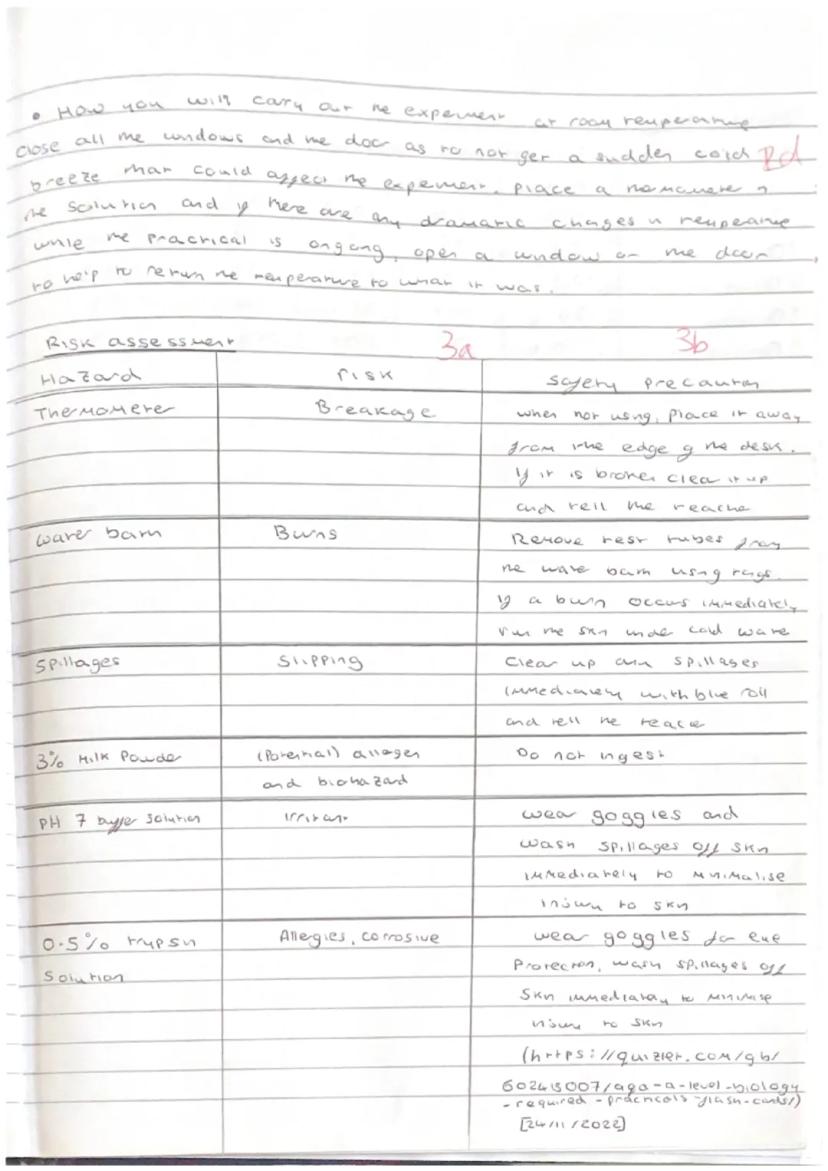 • How you will carry out the experiment at room temperature
close all the windows and the door as to not get a sudden cold Rd
breeze that could affect the experiment. Place a thermometer in
the solution and if there are any dramatic changes in temperature
while the practical is ongoing, open a window or the door
to help to return the temperature to what it was.
Risk assessment 3a 3b
Hazard risk safety precaution
Thermometer Breakage when not using, place it away
from the edge of the desk.
If it is broken clear it up
and tell the teacher
water bath Burns Remove test tubes from
the water bath using tongs.
If a burn occurs immediately
run the skin under cold water
Spillages Slipping Clear up any spillages
immediately with blue roll
and tell the teacher
3% Milk Powder (Potential) allergen Do not ingest
and biohazard
PH 7 buffer solution irritant wear goggles and
wash spillages off skin
immediately to minimalise
injury to skin
0.5% trypsin Allergies, corrosive wear goggles for eye
Solution Protection, wash spillages off
Skin immediately to minimise
injury to skin
(https://quizlet.com/gb/
602413007/aqa-a-level-biology
-required-practicals-flash-cards/)
[24/11/2022]